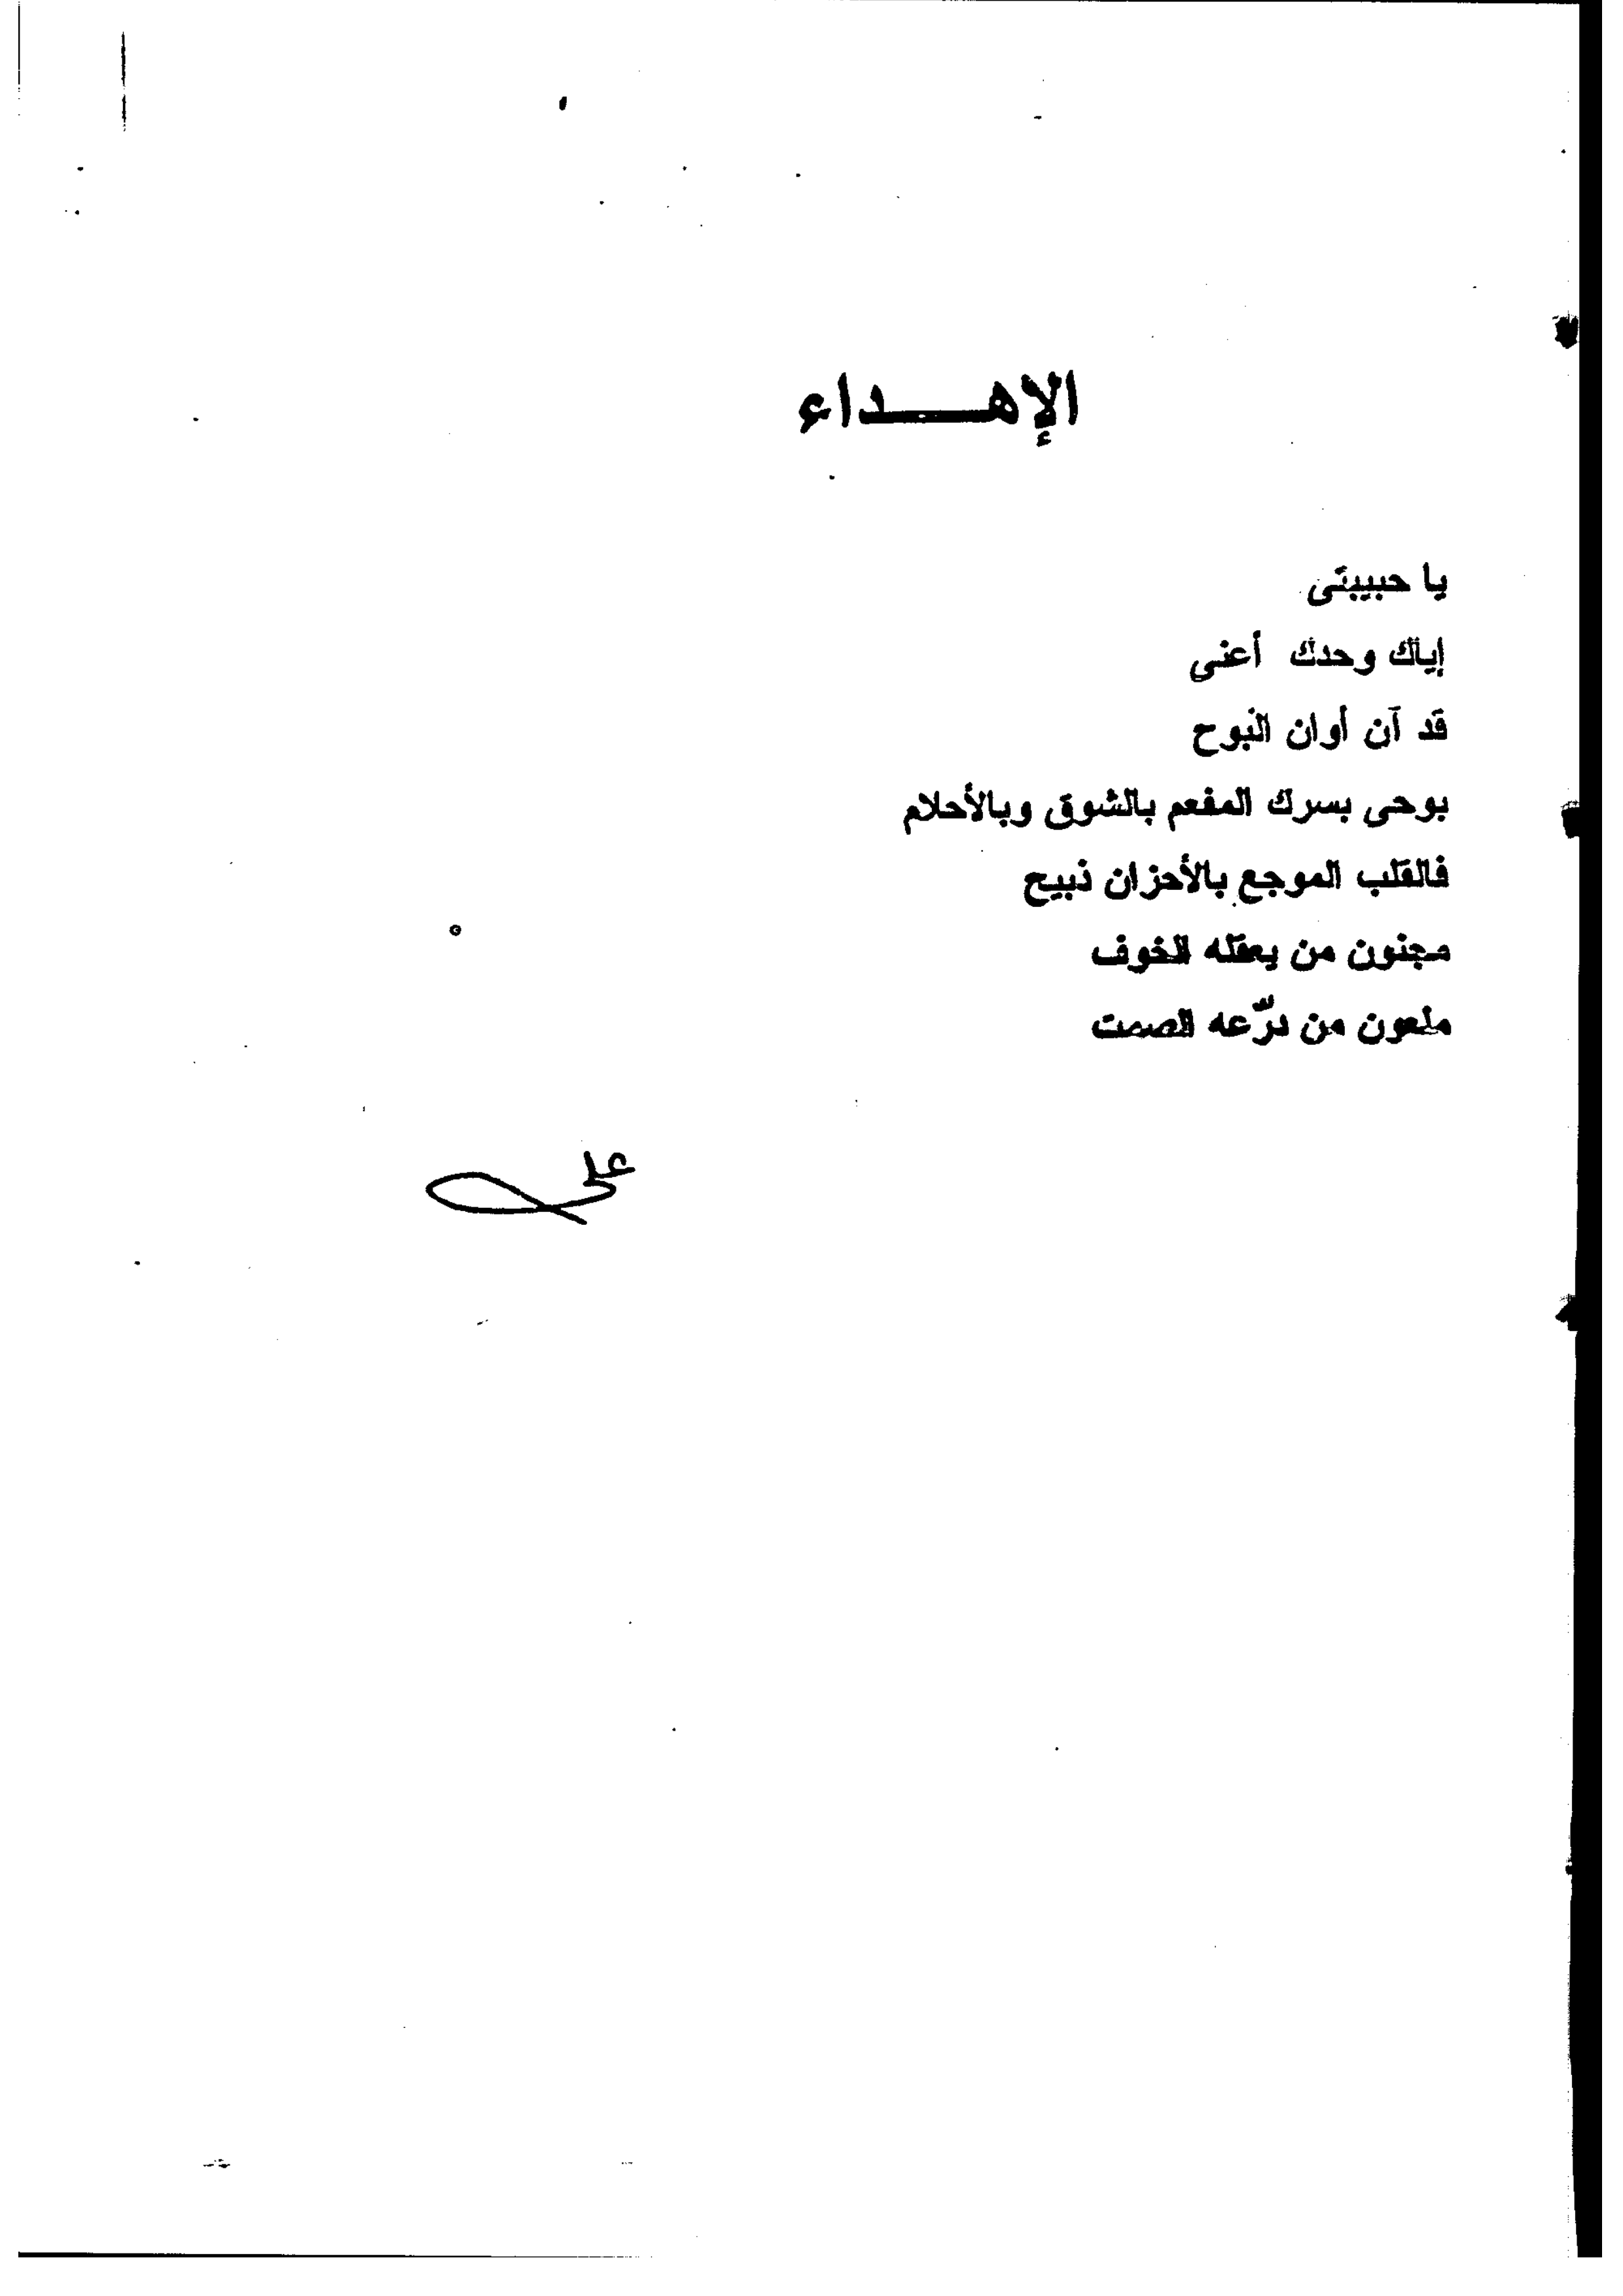 الإهـــداء
يا حبيبتى
إياك وحدك أعني
قد آن أوان البوح
بوحى بسرك المفعم بالشوق وبالأحلام
فالقلب الموجع بالأحزان ذبيح
مجنون من يعقله الخوف
ملعون من درّعه الصمت
على